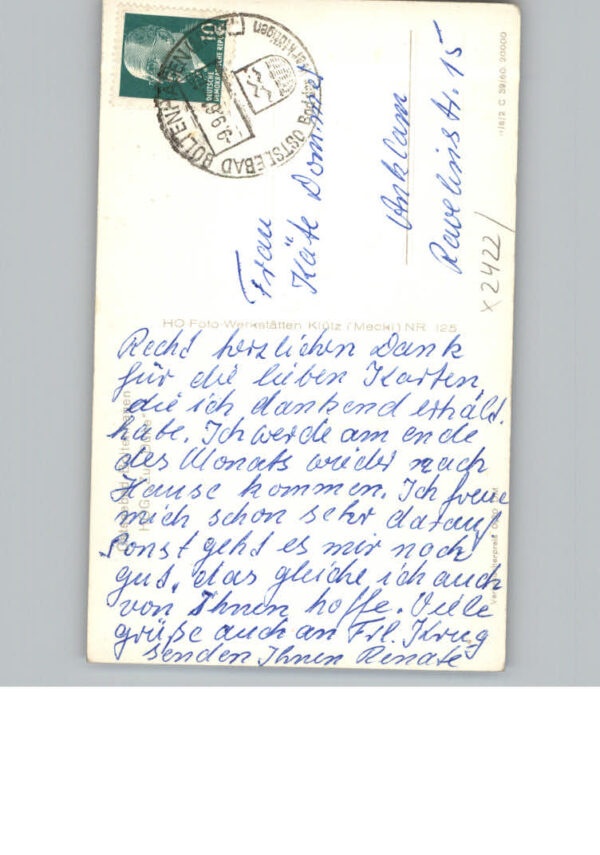 10
DEUTSCHE
DEMOKRATISCHE REPUBLIK
OSTSEEBAD BOLTENHAGEN
Frau
Käte Dommer
Anklam
Ravelinstr. 15
x2422/
HO Foto-Werkstätten Klütz (Meckl) NR. 125
Recht herzlichen Dank
für die lieben Karten,
die ich dankend erhalt.
habe. Ich werde am ende
des Monats wieder nach
Hause kommen. Ich freue
mich schon sehr darauf
Sonst geht es mir noch
gut, das gleiche ich auch
von Ihnen hoffe. Viele
grüße auch an Frl. Krug
senden Ihnen Renate